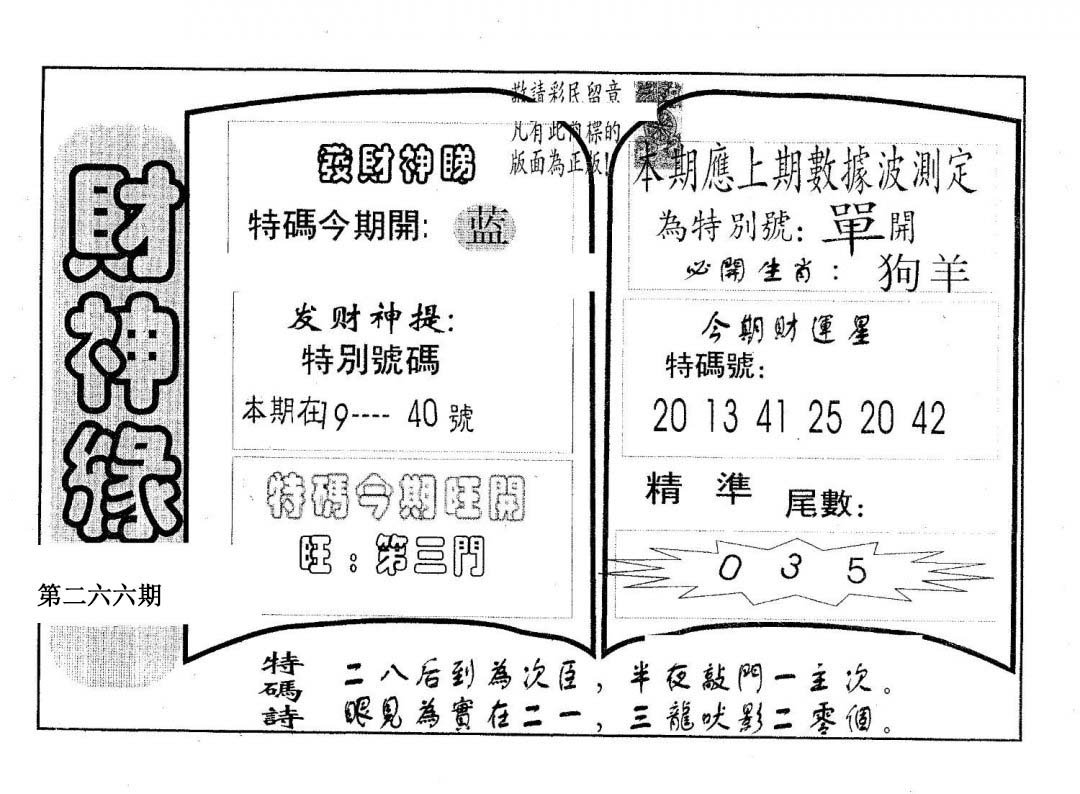 財神緣
第二六六期
敬請彩民留意
凡有此商標的
版面為正版!
發財神賜
特碼今期開: 蓝
发财神提:
特別號碼
本期在19---- 40號
特碼今期旺開
旺:第三門
本期應上期數據波測定
為特別號: 單開
必開生肖: 狗羊
今期財運星
特碼號:
20 13 41 25 20 42
精準 尾數:
0 3 5
特碼詩
二八后到為次臣,半夜敲門一主次。
眼見為實在二一,三龍吠影二零個。